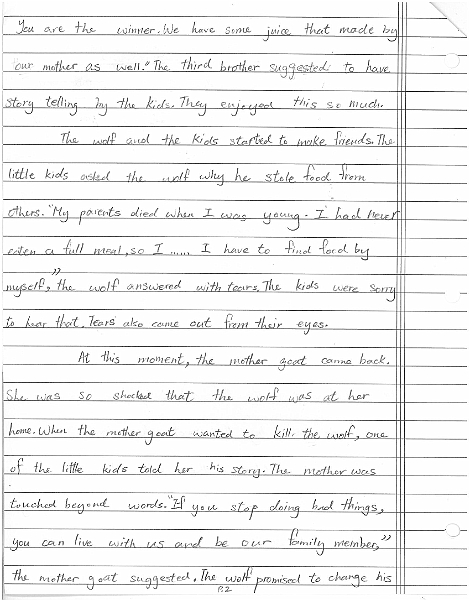 You are the winner. We have some juice that made by
our mother as well." The third brother suggested to have
story telling by the kids. They enjoyed this so much.
The wolf and the kids started to make friends. The
little kids asked the wolf why he stole food from
others. "My parents died when I was young. I had never
eaten a full meal, so I ...... I have to find food by
myself," the wolf answered with tears. The kids were sorry
to hear that. Tears also came out from their eyes.
At this moment, the mother goat came back.
She was so shocked that the wolf was at her
home. When the mother goat wanted to kill the wolf, one
of the little kids told her his story. The mother was
touched beyond words. "If you stop doing bad things,
you can live with us and be our family member,"
the mother goat suggested. The wolf promised to change his
P.2